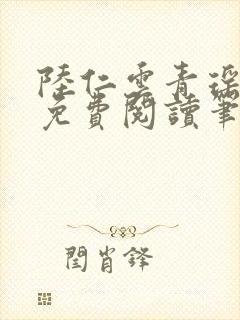 陸仁雲青瑤
免費閱讀筆
閆肖鋒